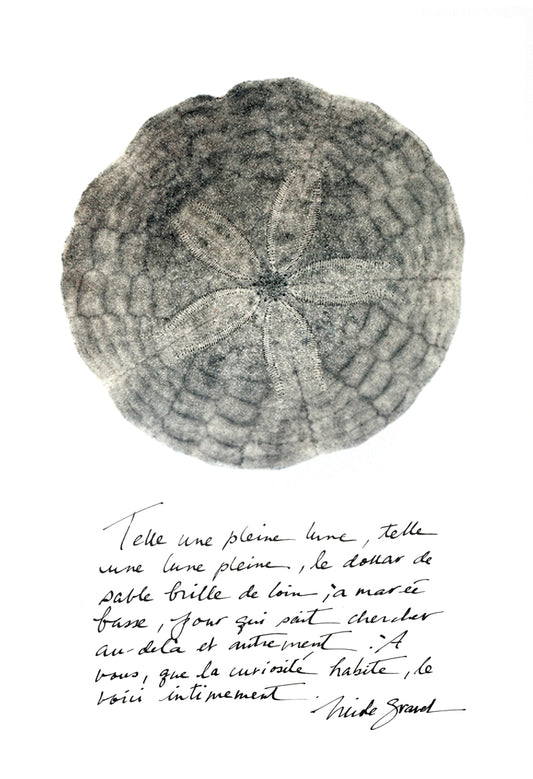 Telle une pleine lune, telle
une lune pleine, le dollar de
sable brille de loin, à marée
basse, pour qui sait chercher
au-delà et autrement. À
vous, que la curiosité habite, le
voici intimement.